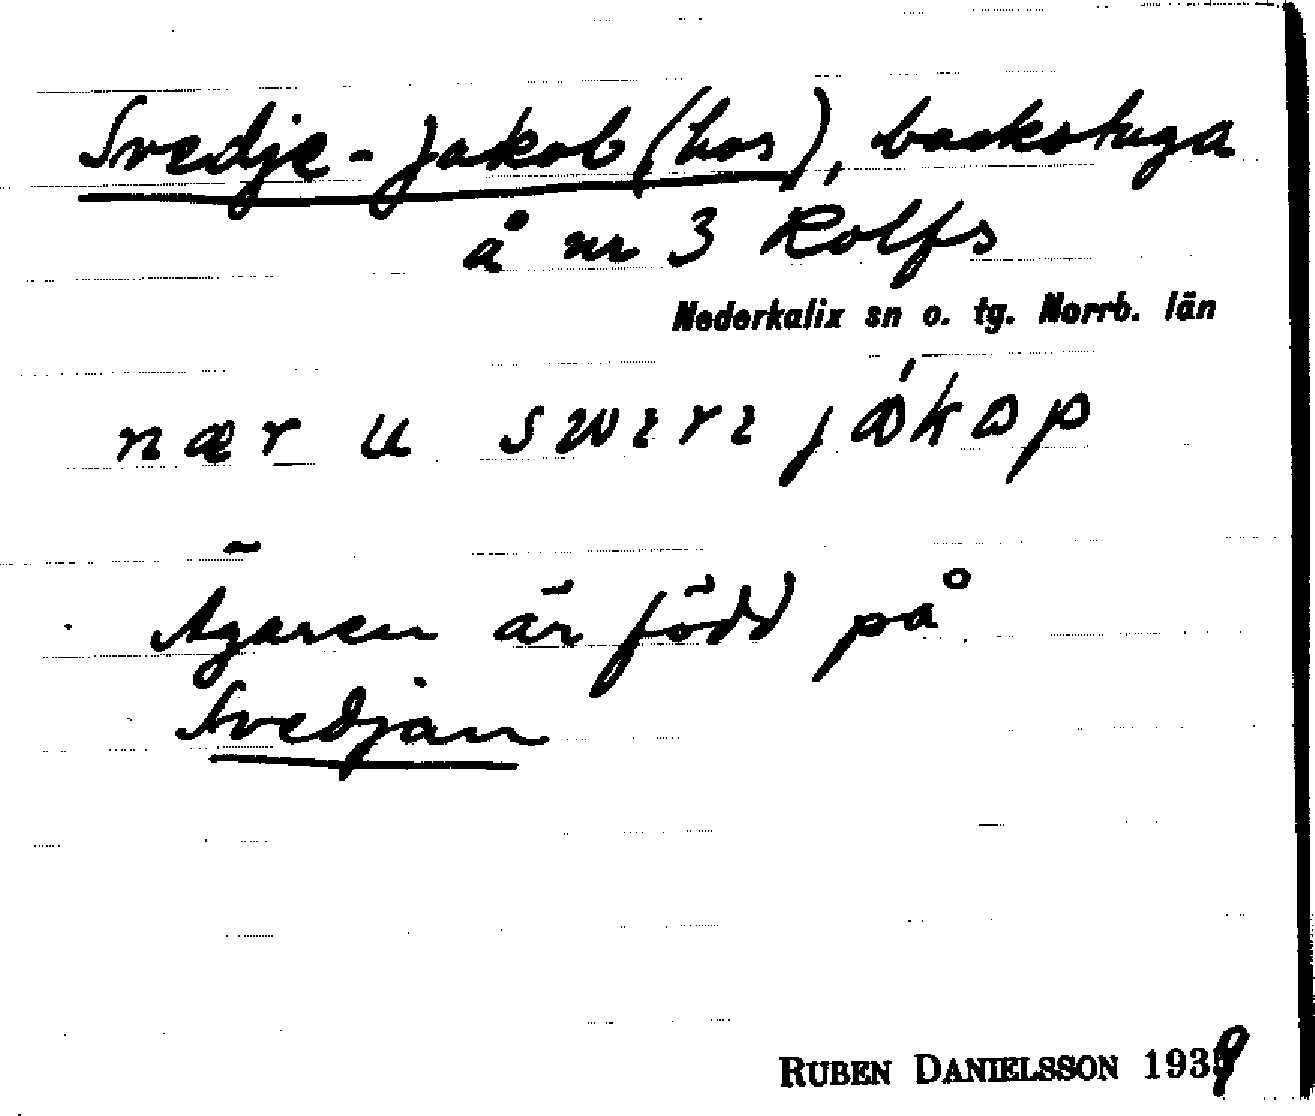 Svedje-Jakob (hos), backstuga
å nr 3 Rolfs
Nederkalix sn o. tg. Norrb. län
nær u swɩrɩ jákap
Ägaren är född på
Svedjan
RUBEN DANIELSSON 1939